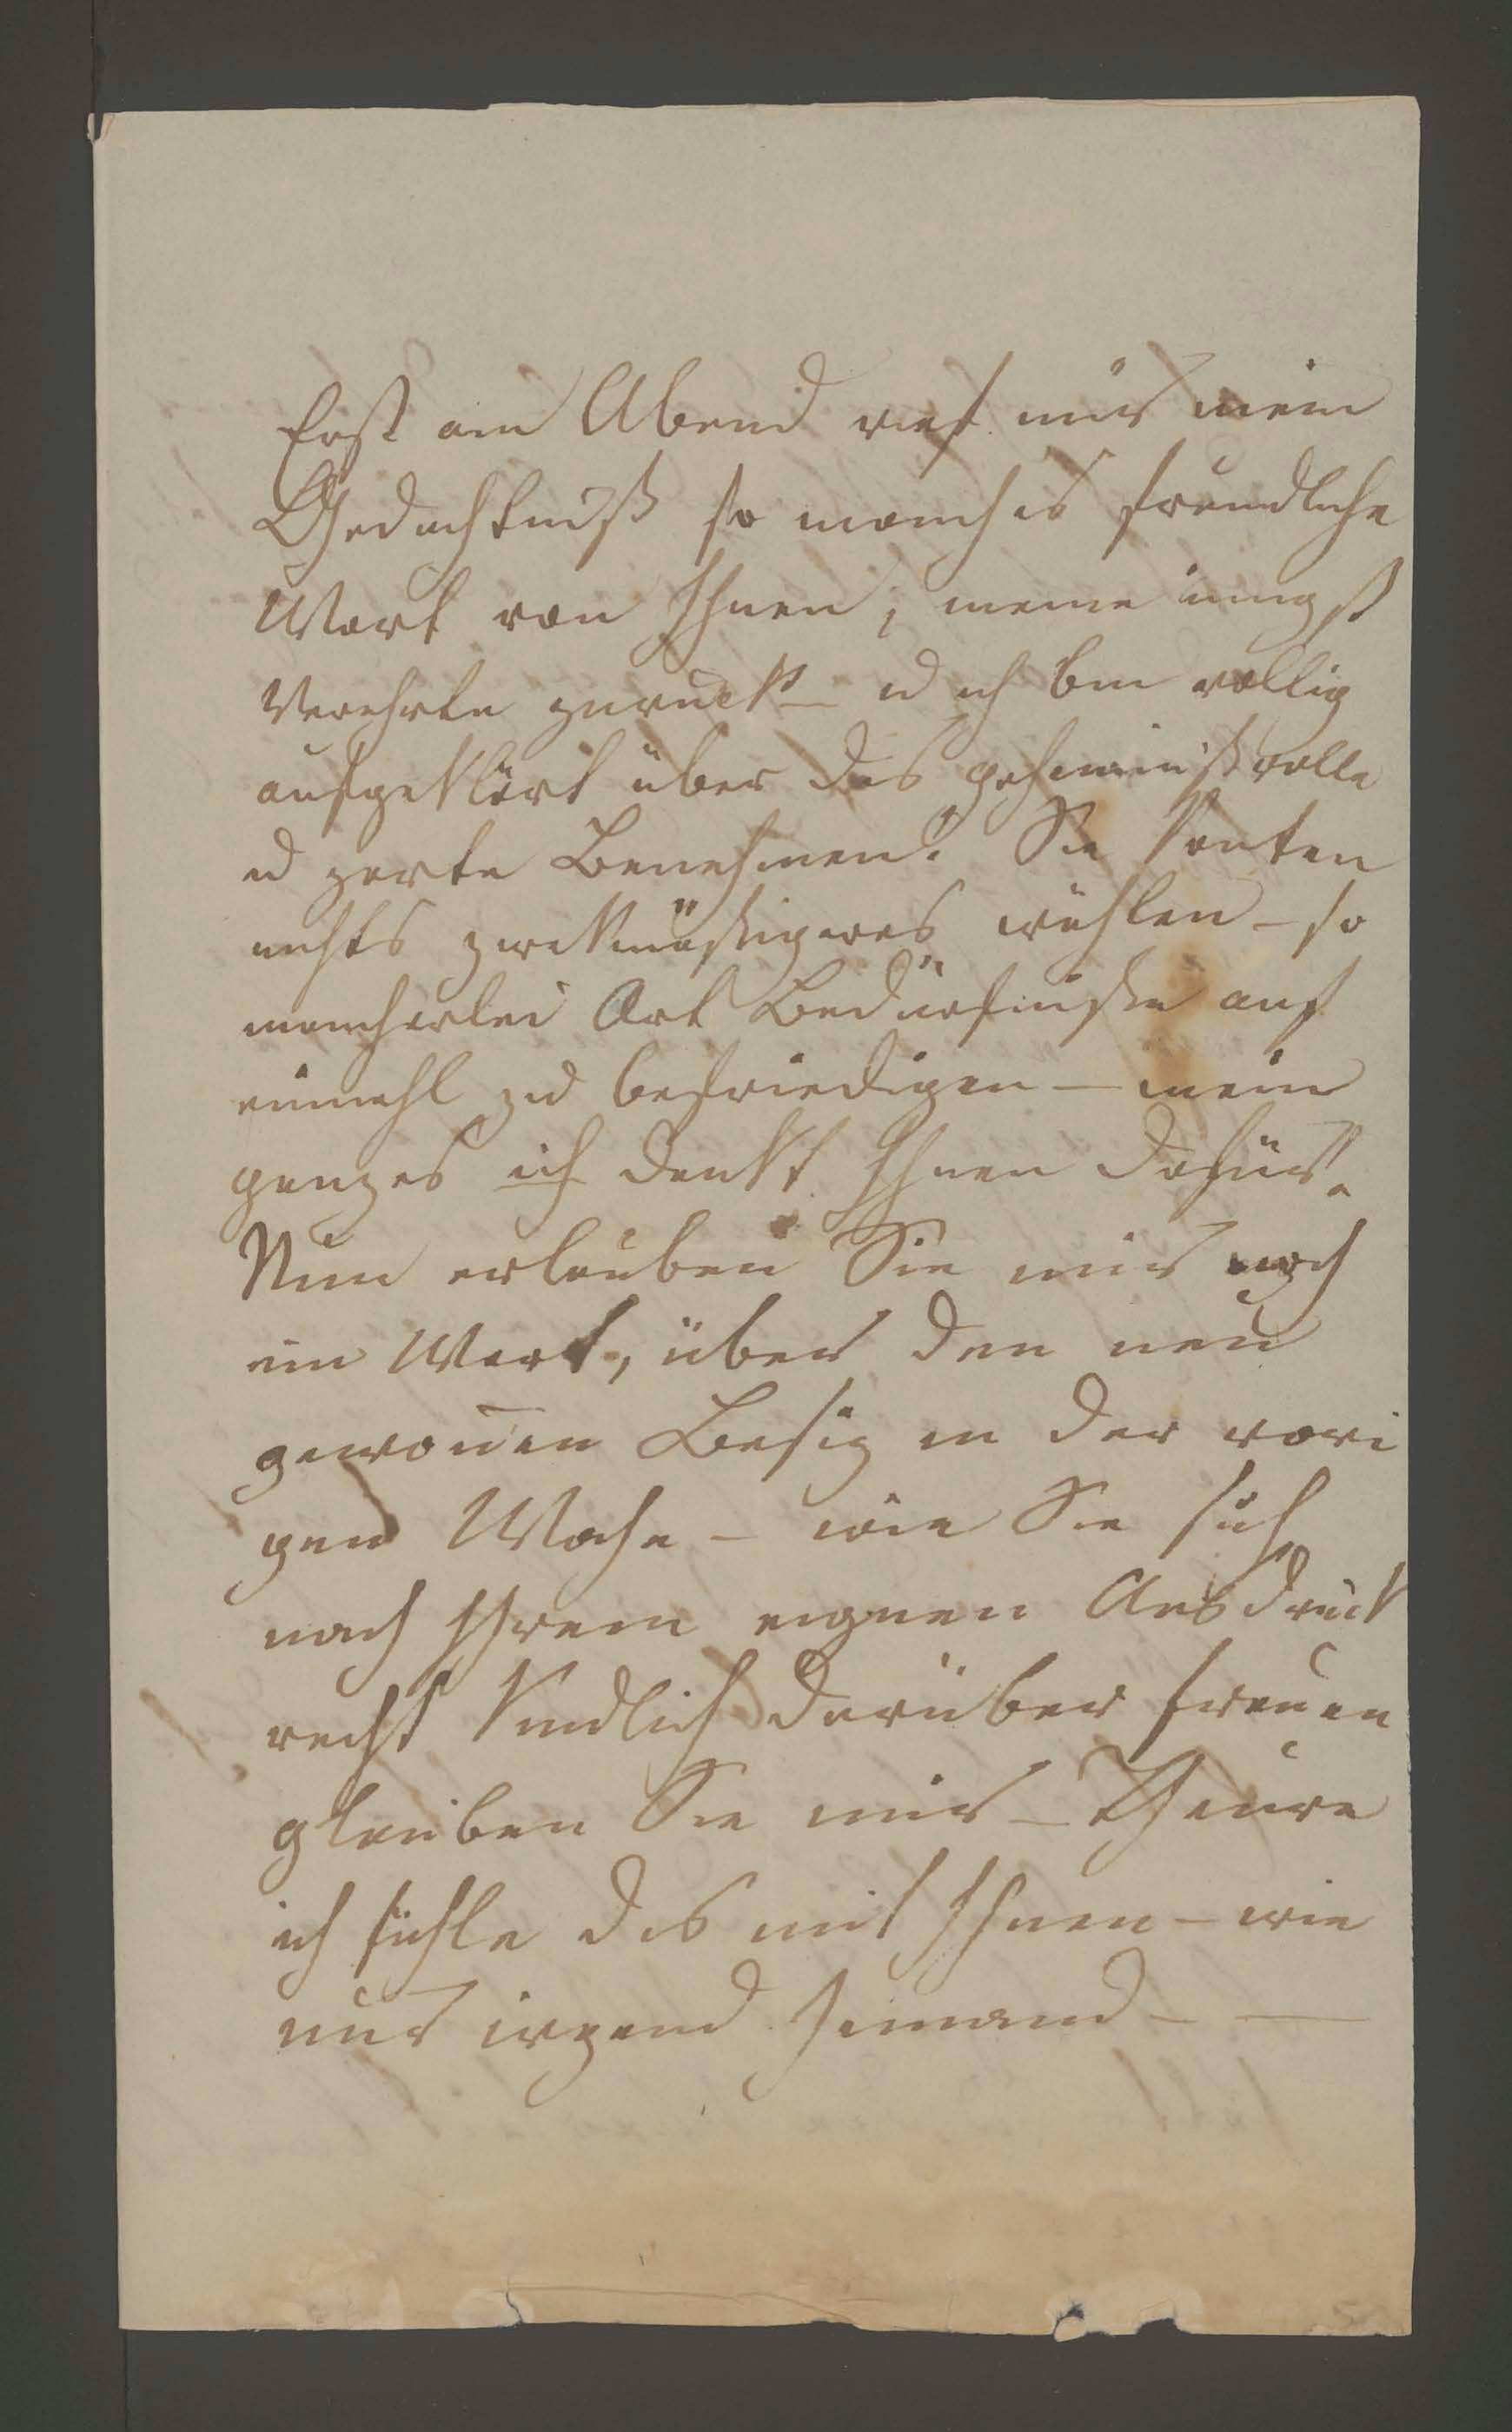 Erst am Abend rief mir mein
Gedächtniß so manches freundliche
Wort von Ihnen, meine innigst
Verehrte zurück – u ich bin völlig
aufgeklärt über das geheimnißvolle
u zarte Benehmen. Sie konten
nichts zwekmäßigeres wählen – so
mancherlei Art Bedürfniße auf
einmahl zu befriedigen – mein
ganzes ich dankt Ihnen dafür.
Nun erlauben Sie mir noch
ein Wort, über den neu
gewon̄en Besiz in der vori
gen Woche – wie Sie sich
nach Ihrem eignen Ausdruck
recht kindlich darüber freuen
glauben Sie mir – Theure
ich fühle das mit Ihnen – wie
nur irgend Jemand – —